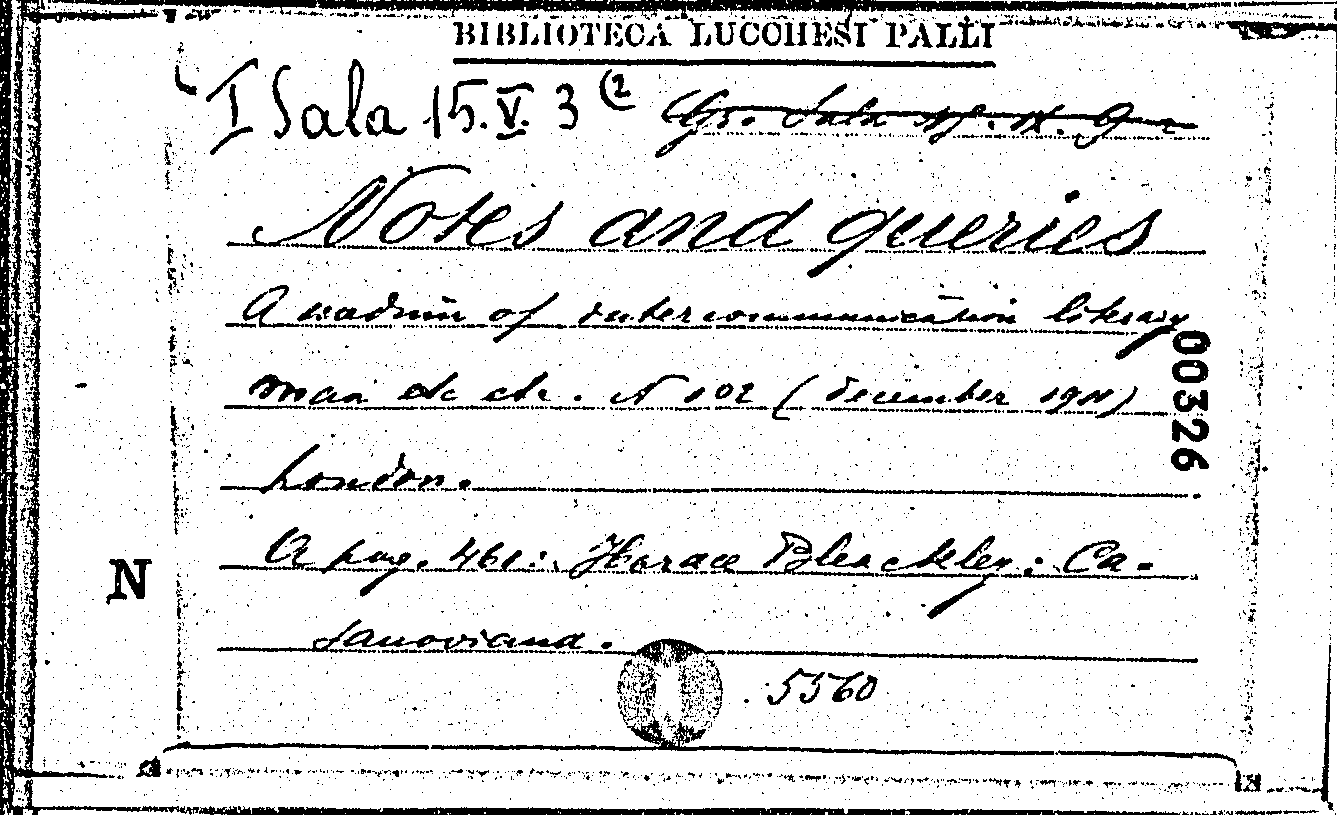 BIBLIOTECA LUCCHESI PALLI
I Sala 15.V.3 (2
Notes and queries
A medium of intercommunication literary
man etc etc. N 102 (december 1911)
London.
A pag. 461: Horace Bleackley: Ca-
sanoviana.
5560
00326
N